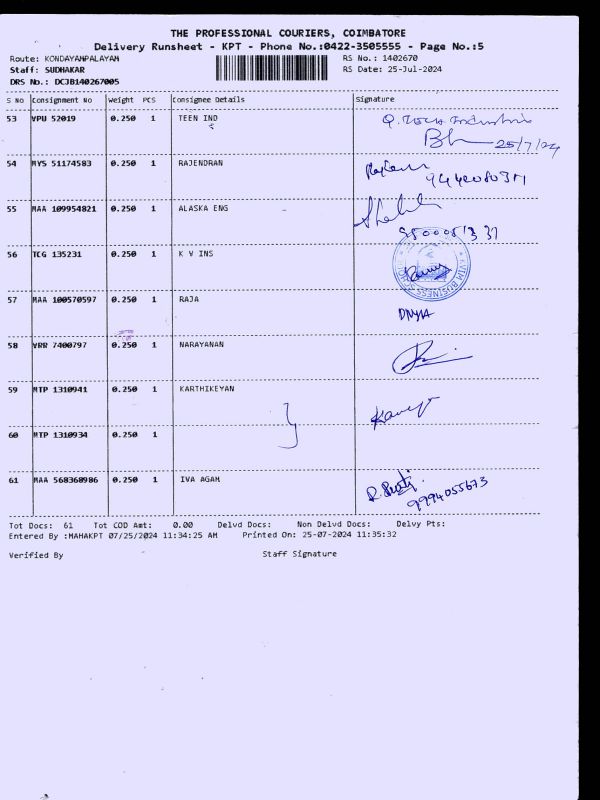 THE PROFESSIONAL COURIERS, COIMBATORE
Delivery Runsheet - KPT - Phone No.:0422-3505555 - Page No.:5
Route: KONDAYAMPALAYAM RS No.: 1402670
Staff: SUDHAKAR RS Date: 25-Jul-2024
DRS No.: DCJB140267005
S No Consignment No Weight PCS Consignee Details Signature
53 VPU 52019 0.250 1 TEEN IND
25/7/24
54 MYS 51174583 0.250 1 RAJENDRAN
55 MAA 109954821 0.250 1 ALASKA ENG
56 TCG 135231 0.250 1 K V INS
57 MAA 100570597 0.250 1 RAJA
DIVYA
58 VRR 7400797 0.250 1 NARAYANAN
59 MTP 1310941 0.250 1 KARTHIKEYAN
60 MTP 1310934 0.250 1
61 MAA 568368986 0.250 1 IVA AGAM
9994055673
Tot Docs: 61 Tot COD Amt: 0.00 Delvd Docs: Non Delvd Docs: Delvy Pts:
Entered By :MAHAKPT 07/25/2024 11:34:25 AM Printed On: 25-07-2024 11:35:32
Verified By Staff Signature